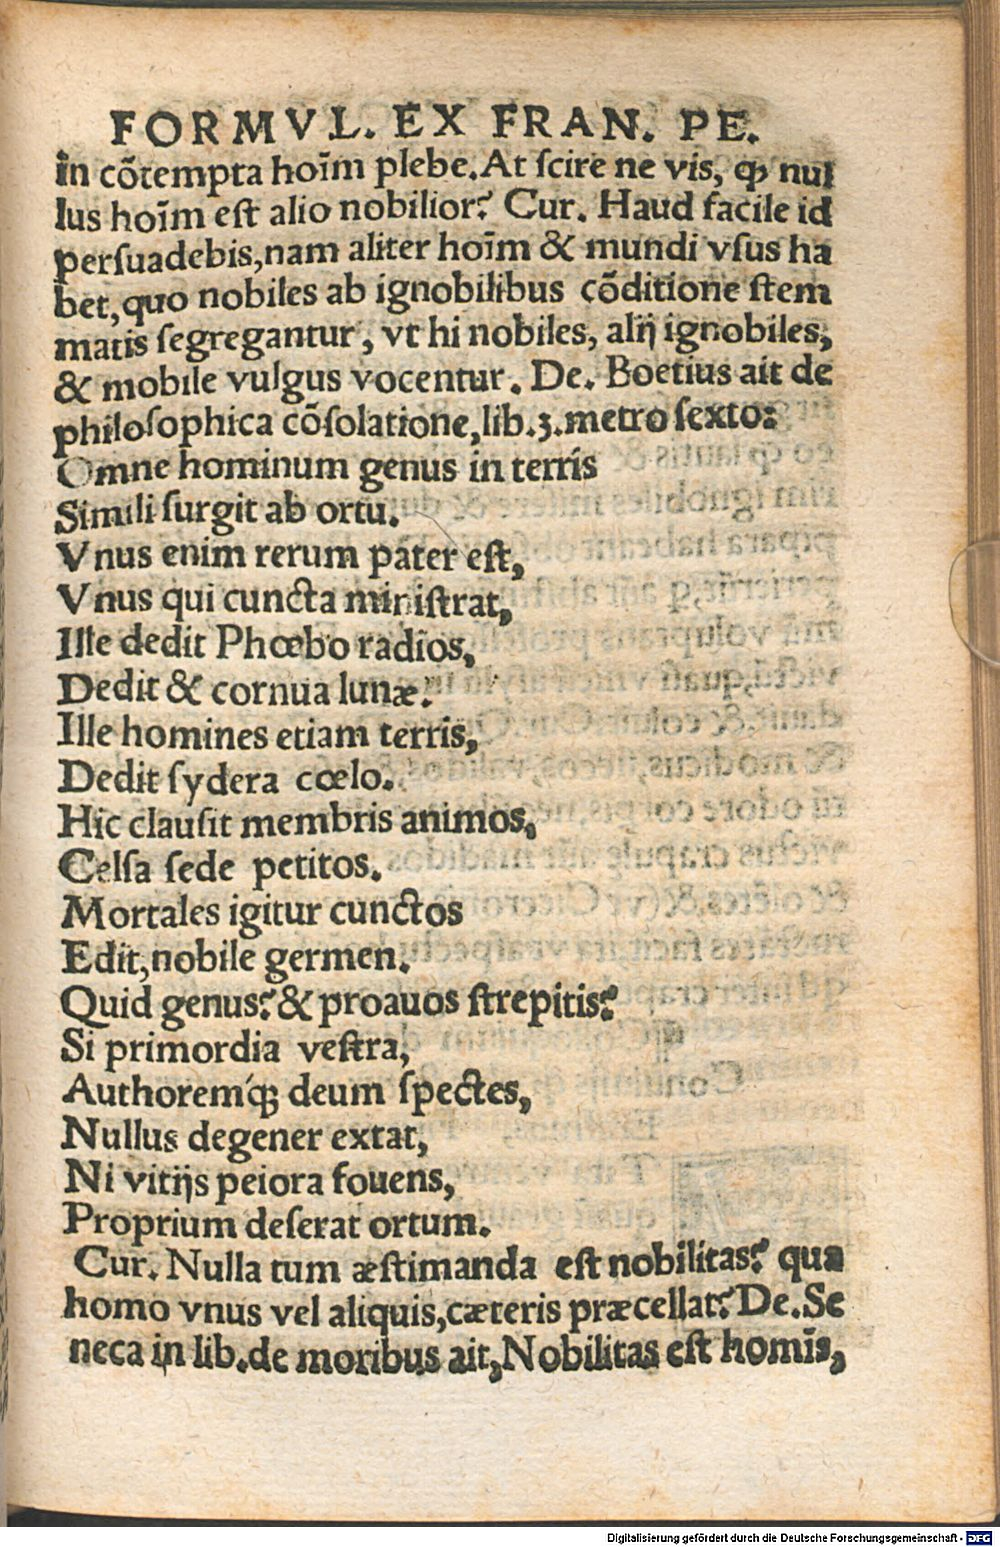 FORMVL. EX FRAN. PE.
in cõtempta hoĩm plebe. At ſcire ne vis, ꝙ nul
lus hoĩm eſt alio nobilior? Cur. Haud facile id
perſuadebis, nam aliter hoĩm & mundi vſus ha
bet, quo nobiles ab ignobilibus cõditione ſtem
matis ſegregantur, vt hi nobiles, alij ignobiles,
& mobile vulgus vocentur. De. Boetius ait de
philoſophica cõſolatione, lib. 3. metro ſexto:
Omne hominum genus in terris
Simili ſurgit ab ortu.
Vnus enim rerum pater eſt,
Vnus qui cuncta miniſtrat,
Ille dedit Phœbo radios,
Dedit & cornua lunæ.
Ille homines etiam terris,
Dedit ſydera cœlo.
Hic clauſit membris animos,
Celſa ſede petitos.
Mortales igitur cunctos
Edit, nobile germen.
Quid genus? & proauos ſtrepitis?
Si primordia veſtra,
Authoremq́ꝫ deum ſpectes,
Nullus degener extat,
Ni vitijs peiora fouens,
Proprium deſerat ortum.
Cur. Nulla tum æſtimanda eſt nobilitas? qua
homo vnus vel aliquis, cæteris præcellat? De. Se
neca in lib. de moribus ait, Nobilitas eſt homĩs,
Digitalisierung gefördert durch die Deutsche Forschungsgemeinschaft - DFG